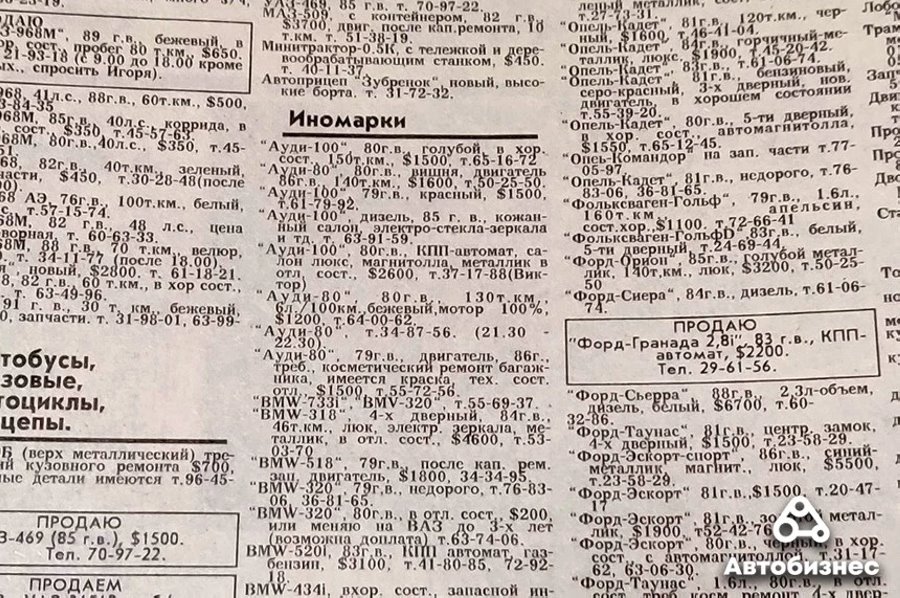 ПРОДАЮ
-968М", 89 г.в., бежевый, в
сост., пробег 80 т.км., $650.
21-93-18 (с 9.00 до 18.00 кроме
спросить Игоря).
968, 41л.с., 88г.в., 60т.км., $500,
3-84-35
968М, 85г.в., 40л.с., коррида, в
сост., $350, т.45-57-63.
68М, 80г.в.,40л.с., $350, т.45-
51
68, 82г.в., 40т.км., зеленый,
части, $450, т.30-28-48(после
00).
68 АЭ, 76г.в., 100т.км., белый,
т.57-15-74.
968М, 82 г.в., 48 л.с., цена
ворная т. 60-63-33.
68М, 88 г.в., 70 т.км., велюр,
т. 34-11-77 (после 18.00)
новый, $2800. т. 61-18-21.
8, 82 г.в., 60 т.км., в хор сост.,
т. 63-49-96.
91 г. в., 30 т. км., бежевый,
0, запчасти. т. 31-98-01, 63-99-
тобусы,
зовые,
тоциклы,
цепы.
(верх металлический) тре-
ий кузовного ремонта $700,
ные детали имеются т.96-45-
ПРОДАЮ
З-469 (85 г.в.), $1500.
Тел. 70-97-22.
ПРОДАЕМ
УАЗ-469, 85 г.в. т. 70-97-22.
МАЗ-509, с контейнером, 82 г.в.,
$3700, двиг. после кап.ремонта, 10
т.км. т. 51-38-19.
Минитрактор-0.5К, с тележкой и дере-
вообрабатывающим станком, $450.
т. 40-11-37.
Автоприцеп "Зубренок", новый, высо-
кие борта. т. 31-72-32.
Иномарки
"Ауди-100" 80г.в., голубой, в хор.
сост., 150т.км., $1500, т.65-16-72
"Ауди-80" 80г.в., вишня, двигатель
86г.в., 140т.км., $1600, т.50-25-50.
"Ауди-100" 79г.в., красный, $1500,
т.61-79-92.
"Ауди-100", дизель, 85 г. в., кожан-
ный салон, электро-стекла-зеркала
и тд, т. 63-91-59.
"Ауди-100", 80г.в., КПП-автомат, са-
лон люкс, магнитолла, металлик в
отл. сост., $2600, т.37-17-88(Вик-
тор)
"Ауди-80", 80г.в., 130т.км.,
6л./100км.,бежевый,мотор 100%,
$1200, т.64-00-62.
"Ауди-80", т.34-87-56. (21.30 -
22.30)
"Ауди-80", 79г.в., двигатель, 86г.,
треб., косметический ремонт багаж-
ника, имеется краска, тех. сост.
отл., $1500, т.55-72-56.
"BMW-733i", "BMV-320", т.55-69-37.
"BMW-318", 4-х дверный, 84г.в.,
46т.км., люк, электр. зеркала, ме-
таллик, в отл. сост., $4600, т.53-
03-70
"BMW-518", 79г.в., после кап. рем.
зап. двигатель, $1800, 34-34-95.
"BMW-320" 79г.в., недорого, т.76-83-
06, 36-81-65.
"BMW-320", 80г.в., в отл. сост., $200,
или меняю на ВАЗ до 3-х лет
(возможна доплата) т.63-74-06.
BMW-520i, 83г.в., КПП автомат, газ-
бензин, $3100, т.41-80-85, 72-92-
18.
BMW-434i, вхор. сост., запасной ин-
т.27-73-31
"Опель-Кадет", 81г.в., 120т.км., чер-
ный, $1600, т.46-41-04.
"Опель-Кадет", 84г.в., горчичный-ме-
таллик, люкс, $1900, т.45-20-42.
"Опель-Кадет", 83г.в., т.61-06-74.
"Опель-Кадет", 81г.в., бензиновый,
серо-красный, 3-х дверный, нов.
двигатель, в хорошем состоянии
т.55-39-20.
"Опель-Кадет", 80г.в., 5-ти дверный,
в хор. сост., автомагнитолла,
$1550, т.65-12-45.
"Опель-Командор" на зап. части т.77-
05-97
"Опель-Кадет", 81г.в., недорого, т.76-
83-06, 36-81-65.
"Фольксваген-Гольф", 79г.в., 1.6л.,
160т.км., апельсин,
сост.хор.,$1100, т.72-66-41
"Фольксваген-ГольфD" 83г.в., белый,
5-ти дверный, т.24-69-44.
"Форд-Орион", 85г.в., голубой метал-
лик, 140т.км., люк, $3200, т.50-25-
50
"Форд-Сиера", 84г.в., дизель, т.61-06-
74.
ПРОДАЮ
"Форд-Гранада 2,8i", 83 г.в., КПП-
автомат, $2200.
Тел. 29-61-56.
"Форд-Сьерра", 88г.в., 2,3л-объем,
дизель, белый, $6700, т.60-
32-86.
"Форд-Таунас", 81г.в., центр. замок,
4-х дверный, $1500, т.23-58-29.
"Форд-Эскорт-спорт", 86г.в., синий-
металлик, магнит., люк, $5500,
т.23-58-29.
"Форд-Эскорт" 81г.в.,$1500, т.20-47-
17
"Форд-Эскорт", 81г.в., метал-
лик, $1900, т.52-42-76
"Форд-Эскорт", 80г.в., черный, в хор.
сост., с автомагнитоллой, т.31-17-
62, 63-06-30.
"Форд-Таунас", 1.6л., 80г.в., в отл.
сост. треб. косм. ремонт, 4-х двер-
Автобизнес